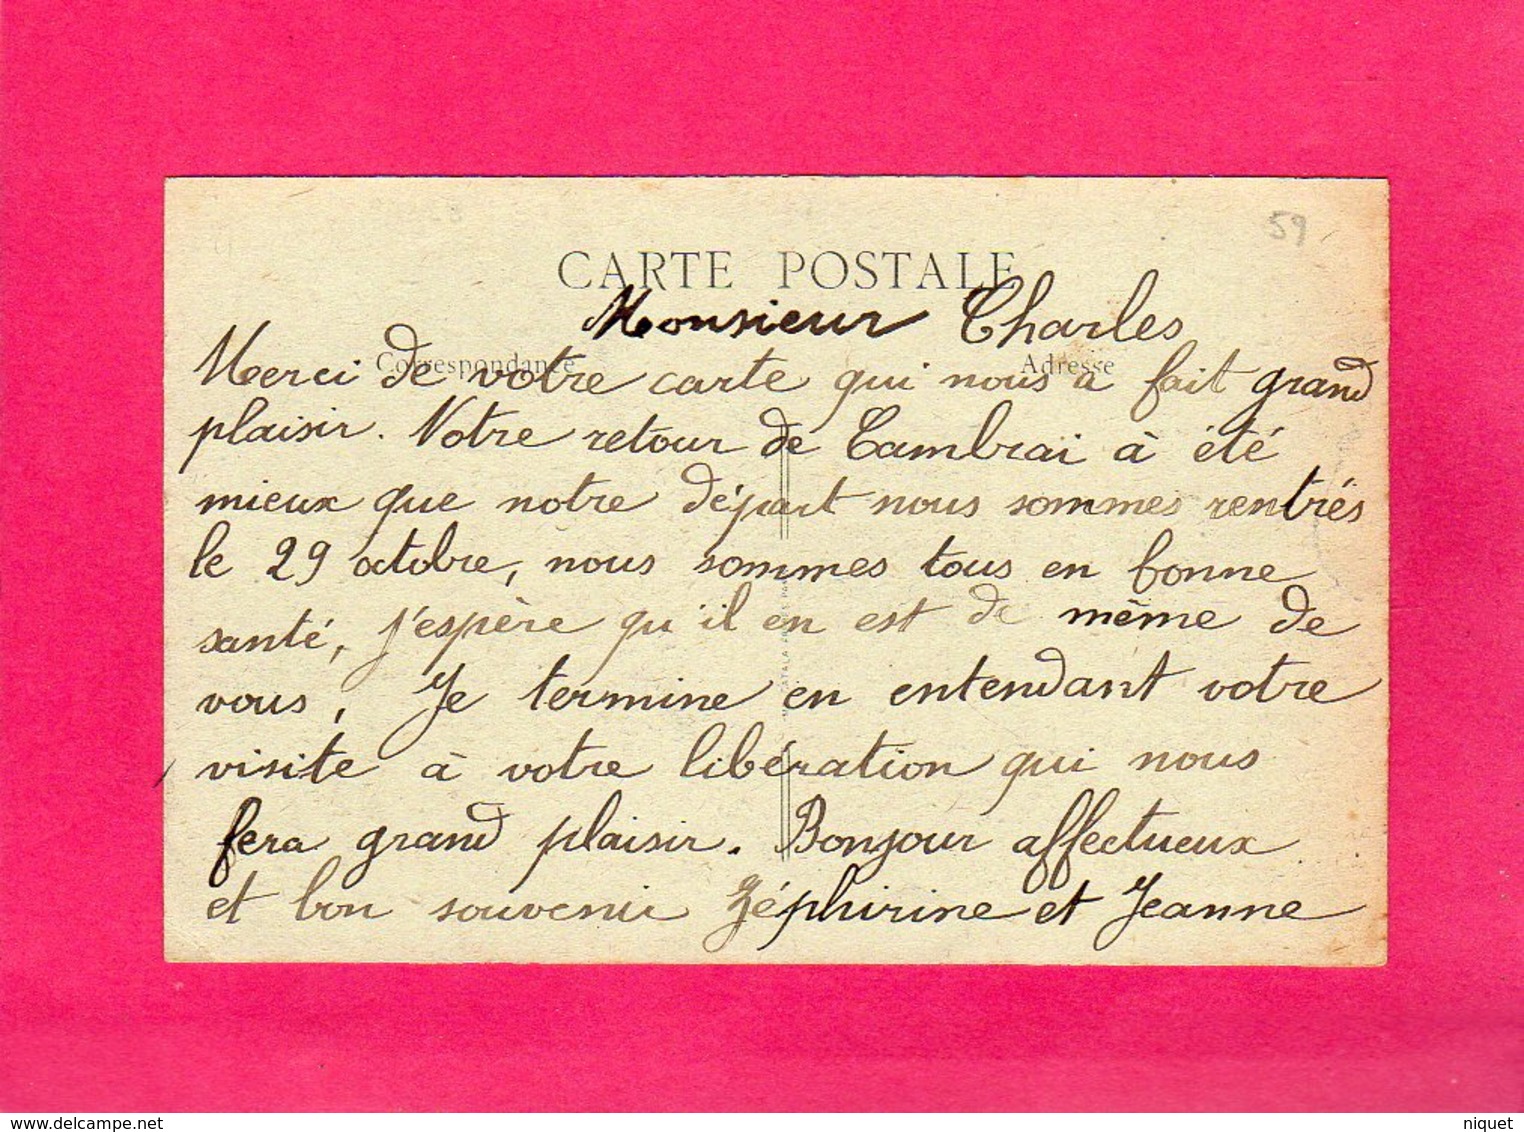 59
CARTE POSTALE
Monsieur Charles
Correspondance
Adresse
Merci de votre carte qui nous a fait grand
plaisir. Notre retour de Cambrai à été
mieux que notre départ nous sommes rentrés
le 29 octobre, nous sommes tous en bonne
santé, j'espère qu'il en est de même de
vous, Je termine en entendant votre
visite à votre libération qui nous
fera grand plaisir. Bonjour affectueux
et bon souvenir Zéphirine et Jeanne
niquet